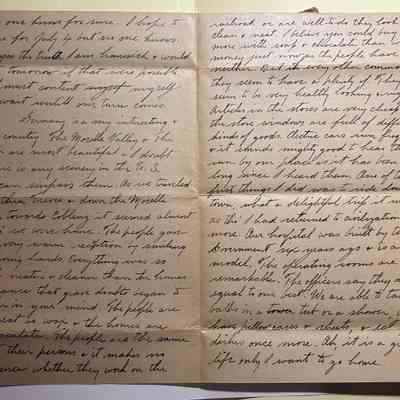 our hands for sure. I hope to
for July 4 but no one knows.
the truth I am homesick & would
tomorrow if that were possible
must content myself
wait until our turn comes.
Germany is a very interesting &
country. The Moselle Valley & the
are most beautiful & I doubt
is any scenery in the U. S.
can surpass them. As we traveled
from Treves down the Moselle
towards Coblenz it seemed almost
if we were home. The people gave
very warm reception by
hands. Everything was so
neat & cleaner than the homes
France that grave doubts began to
in your mind. The people are
neat & the homes are
The people are the same
their persons & it makes no
whether they work on the
railroad or are well-to-do they look
clean & neat. I believe you could buy
more with soap & chocolate than
money just now as the people have
neither. But in every other commodity
they seem to have a plenty & They
seem to be very healthy looking
Articles in the stores are very cheap &
the store windows are full of different
kinds of goods. Electric cars run
& it sounds mighty good to hear them
run by our place as it has been
long since I heard them. One of the
first things I did was to ride down
town. What a delightful trip it was
as tho' I had returned to civilization once
more. Our hospital was built by the
Government six years ago & is a
model. The operating rooms are
remarkable. The officers say they are
equal to our best. We are able to take
baths in a tub or a shower,
have pillow cases & sheets, & eat
dishes once more. Ah it is a great
life only I want to go home.